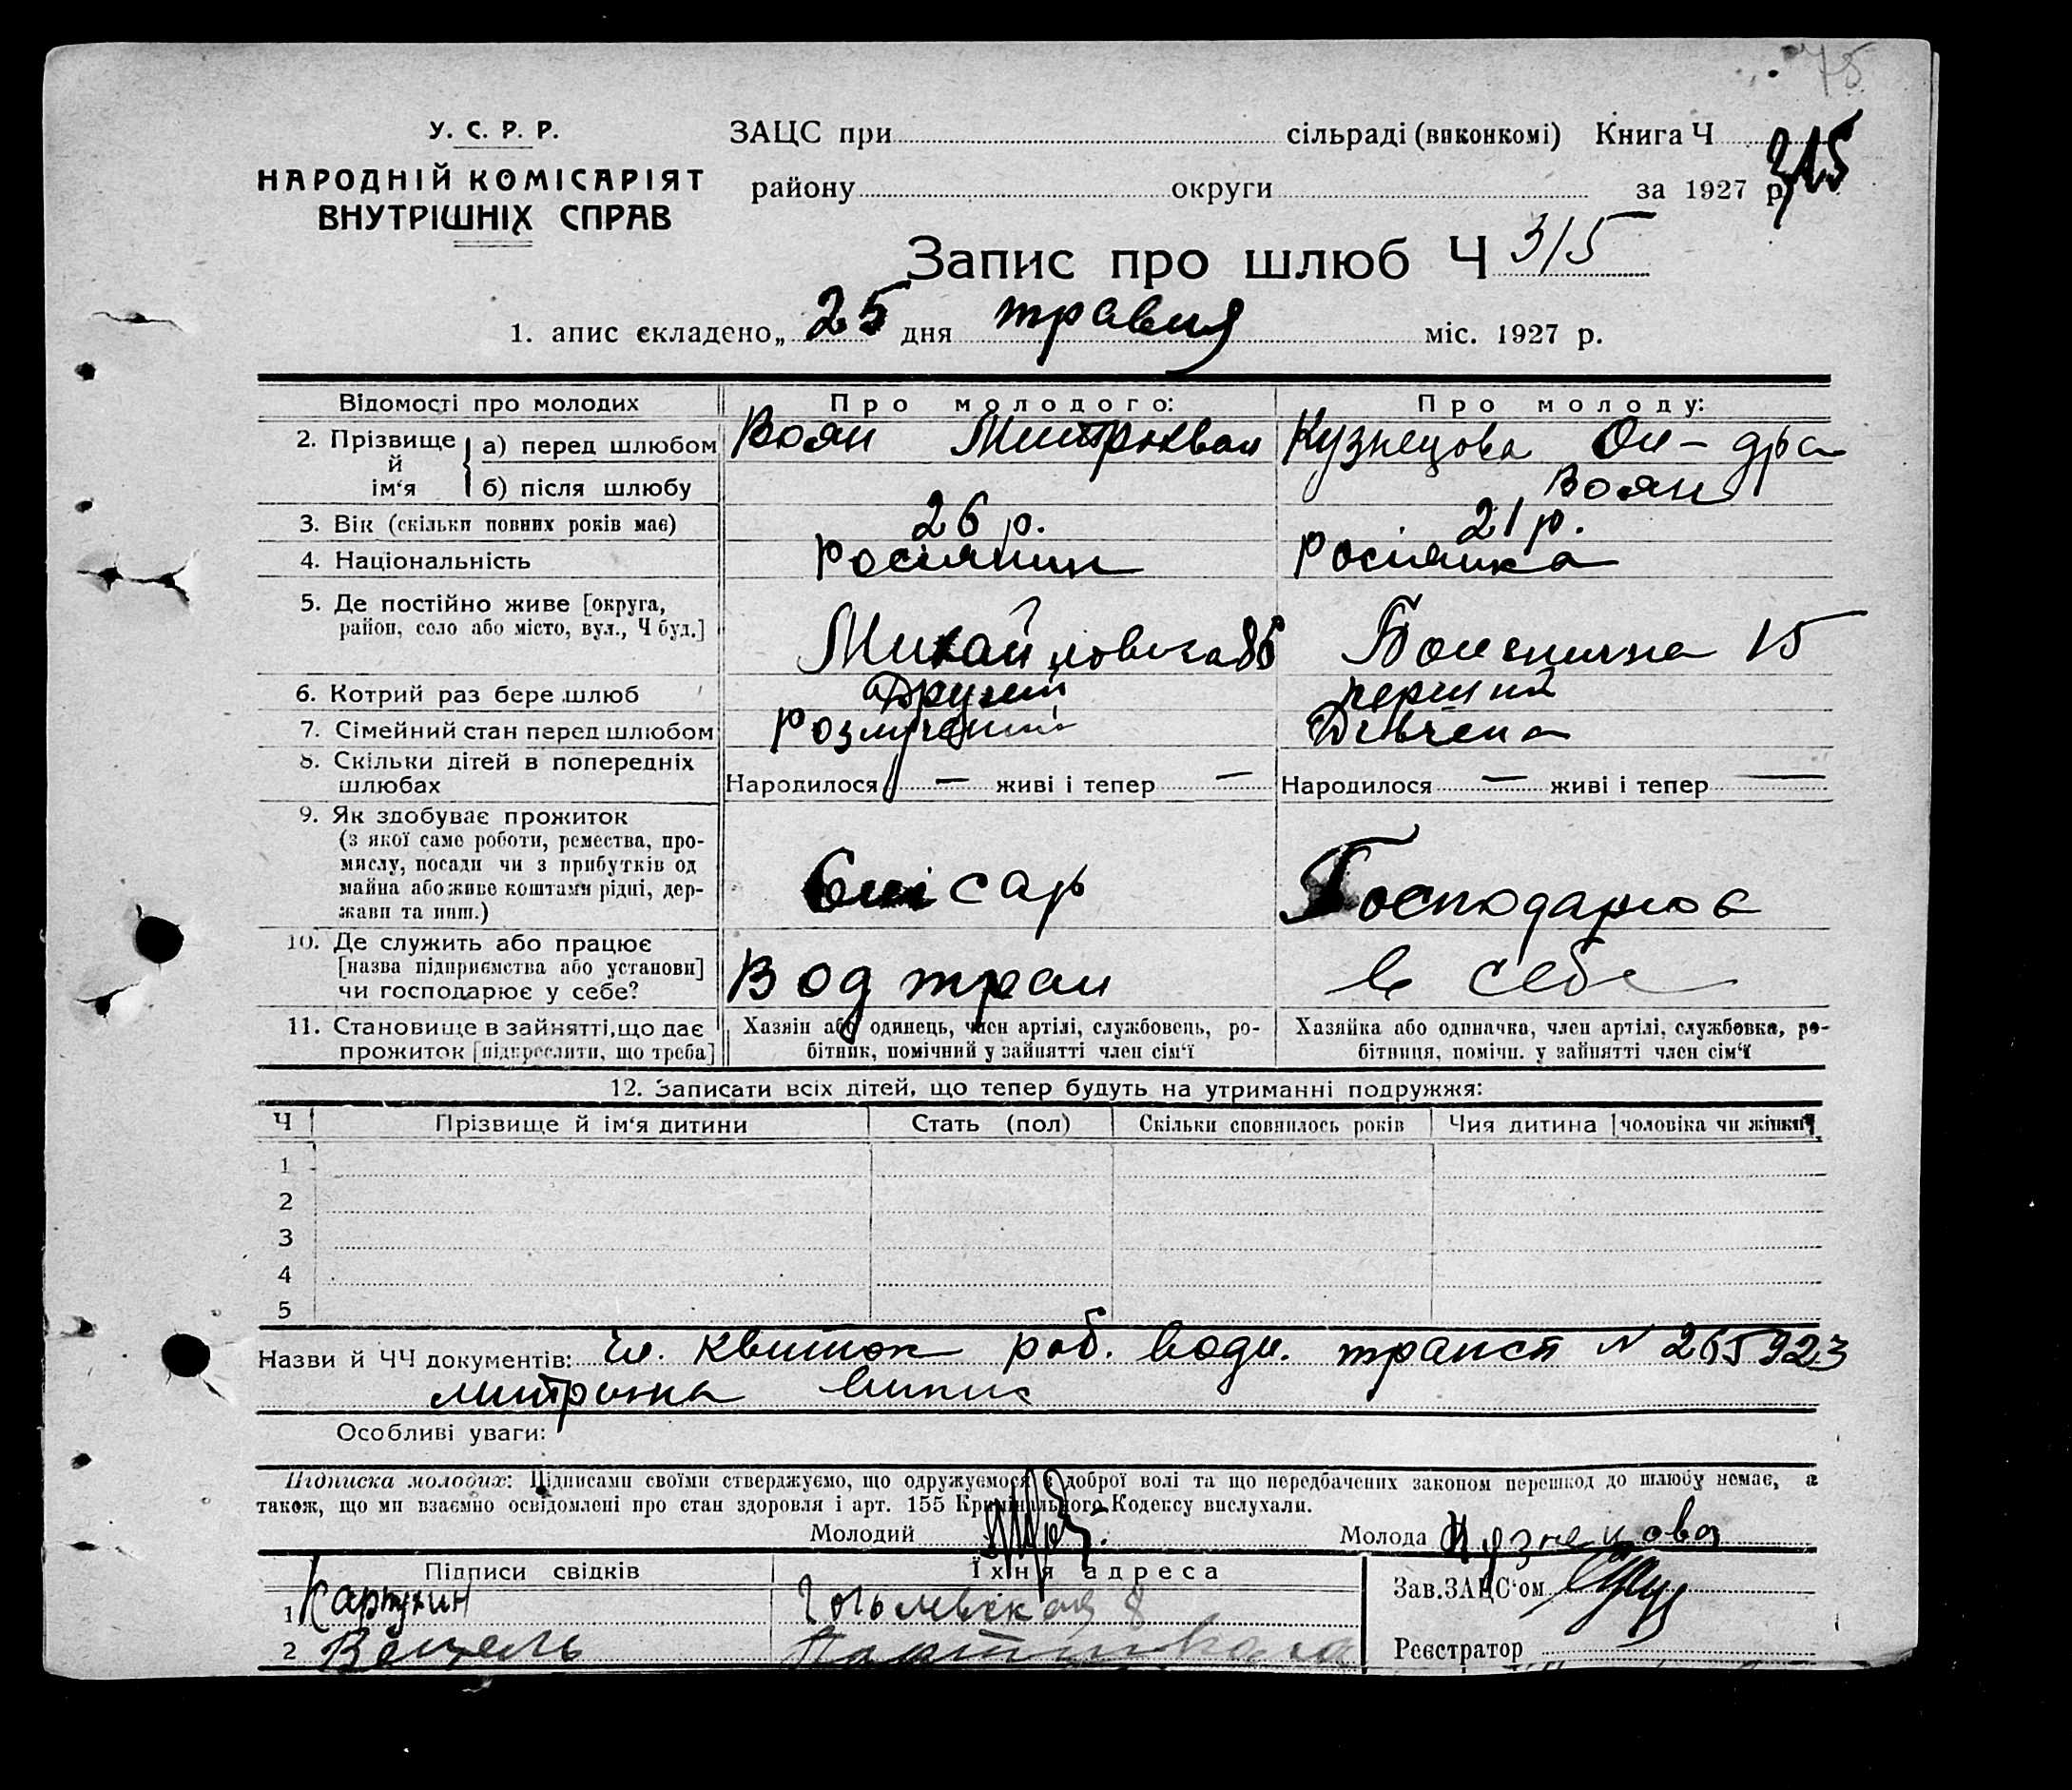 75
У. С. Р. Р.
НАРОДНІЙ КОМІСАРІЯТ
ВНУТРІШНІХ СПРАВ
ЗАЦС при сільраді (виконкомі) Книга Ч
району округи за 1927 р. 315
Запис про шлюб Ч 315
1. апис складено „ 25 дня травня міс. 1927 р.
Відомості про молодих
Про молодого:
Про молоду:
2. Прізвище й ім‘я
а) перед шлюбом
Воян
Кузнецова
б) після шлюбу
Воян
3. Вік (скільки повних років має)
26 р.
21 р.
4. Національність
Росіянин
Росіянка
5. Де постійно живе [округа,
район, село або місто, вул., Ч буд.]
Михайловска 86
15
6. Котрий раз бере шлюб
Другий
перший
7. Сімейний стан перед шлюбом
Розлучений
Дівчена
8. Скільки дітей в попередніх
шлюбах
Народилося — живі і тепер —
Народилося — живі і тепер —
9. Як здобуває прожиток
(з якої саме роботи, ремества, про-
мислу, посади чи з прибутків од
майна або живе коштами рідні, дер-
жави та инш.)
Господарює
10. Де служить або працює
[назва підприємства або установи]
чи господарює у себе?
Вод тран
в себе
11. Становище в зайнятті, що дає
прожиток [підкреслити, що треба]
Хазяін або одинець, член артілі, службовець, ро-
бітник, помічний у зайнятті член сім‘ї
Хазяйка або одиначка, член артілі, службовка, ро-
бітниця, помічн. у зайнятті член сім‘ї
12. Записати всіх дітей, що тепер будуть на утриманні подружжя:
Ч Прізвище й ім‘я дитини Стать (пол) Скільки сповнилось років Чия дитина [чоловіка чи жінки]
1
2
3
4
5
Назви й ЧЧ документів: чл. квиток роб. водн. трансп N 265923
метрична випис
Особливі уваги:
Підписка молодих: Підписами своїми стверджуємо, що одружуємося з доброї волі та що передбачених законом перешкод до шлюбу немає, а
також, що ми взаємно освідомлені про стан здоровля і арт. 155 Кримінального Кодексу вислухали.
Молодий
Молода Кузнецова
Підписи свідків
Їхня адреса
Зав. ЗАЦС‘ом
1 Картухин
Гогольевская 8
2
Реєстратор